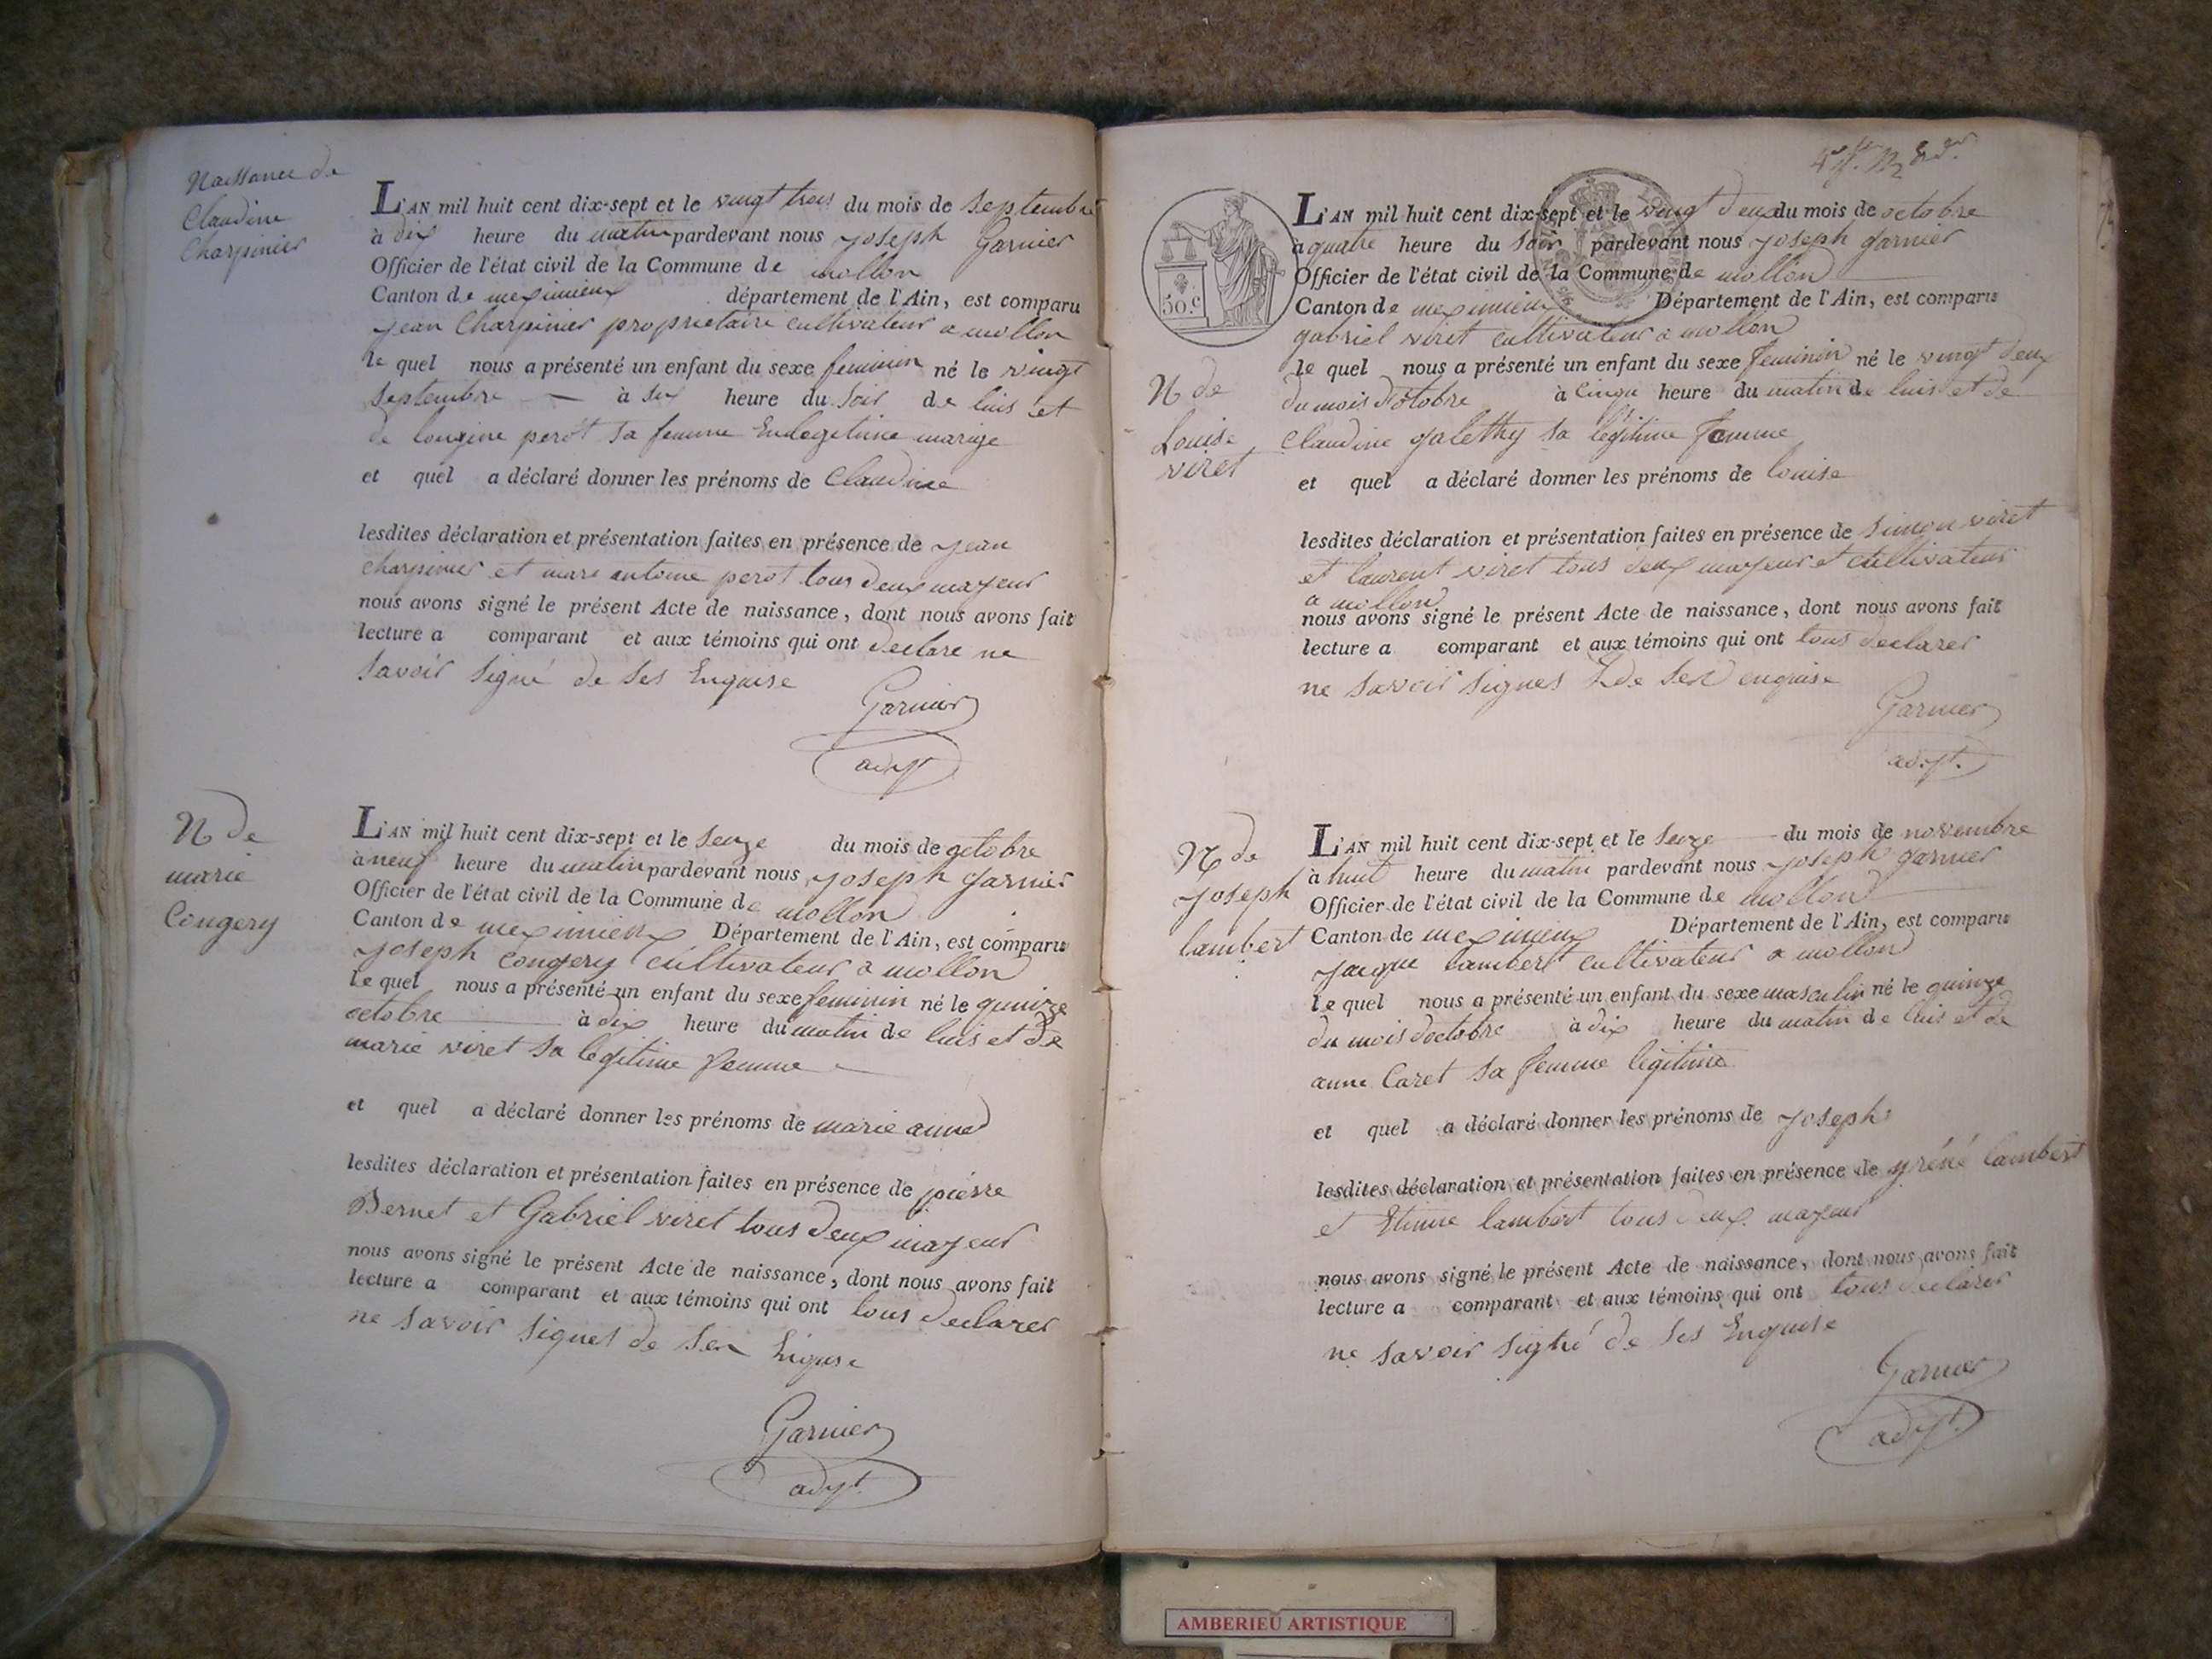 Naissance de
Claudine
Charpinier
L'AN mil huit cent dix-sept et le vingt trois du mois de septembre
à dix heure du matin pardevant nous joseph Garnier
Officier de l'état civil de la Commune de mollon
Canton de meximieux département de l'Ain, est comparu
jean Charpinier proprietaire cultivateur a mollon
le quel nous a présenté un enfant du sexe feminin né le vingt
septembre — à six heure du soir de luis et
de perot sa femme mariage
et quel a déclaré donner les prénoms de Claudine
lesdites déclaration et présentation faites en présence de jean
charpinier et marc antoine perot tous deux majeur
nous avons signé le présent Acte de naissance, dont nous avons fait
lecture a comparant et aux témoins qui ont declare ne
savoir signé de ses Enquise
Garnier
adjt
N de
marie
Congery
L'AN mil huit cent dix-sept et le seuze du mois de octobre
à neuf heure du matin pardevant nous joseph garnier
Officier de l'état civil de la Commune de mollon
Canton de meximieux Département de l'Ain, est comparu
joseph congery cultivateur a mollon
le quel nous a présenté un enfant du sexe feminin né le quinze
octobre à dix heure du matin de luis et de
marie viret sa legitime femme
et quel a déclaré donner les prénoms de marie anne
lesdites déclaration et présentation faites en présence de pierre
Bernet et Gabriel viret tous deux majeur
nous avons signé le présent Acte de naissance, dont nous avons fait
lecture a comparant et aux témoins qui ont tous declarer
ne savoir signes de Enquise
Garnier
adjt.
50.c
N de
Louise
viret
L'AN mil huit cent dix-sept et le vingt deux du mois de octobre
a quatre heure du soir pardevant nous joseph garnier
Officier de l'état civil de la Commune de mollon
Canton de meximieux Département de l'Ain, est comparu
gabriel viret cultivateur a mollon
le quel nous a présenté un enfant du sexe feminin né le vingt deux
du mois doctobre à cinqu heure du matin de luis et de
claudine galethy sa légitime femme
et quel a déclaré donner les prénoms de louise
lesdites déclaration et présentation faites en présence de simon viret
et laurent viret tous deux majeur et cultivateur
a mollon
nous avons signé le présent Acte de naissance, dont nous avons fait
lecture a comparant et aux témoins qui ont tous declarer
ne savoir signes de enquise
Garnier
adjt.
N de
joseph
lambert
L'AN mil huit cent dix-sept et le seuze du mois de novembre
à huit heure du matin pardevant nous joseph garnier
Officier de l'état civil de la Commune de mollon
Canton de meximieux Département de l'Ain, est comparu
jacque lambert cultivateur a mollon
le quel nous a présenté un enfant du sexe masculin né le quinze
du mois doctobre à dix heure du matin de luis et de
anne Caret sa femme légitime
et quel a déclaré donner les prénoms de joseph
lesdites déclaration et présentation faites en présence de lambert
et Etinne lambert tous deux majeur
nous avons signé le présent Acte de naissance, dont nous avons fait
lecture a comparant et aux témoins qui ont tous declarer
ne savoir signé de ses Enquise
Garnier
adjt.
AMBERIEU ARTISTIQUE